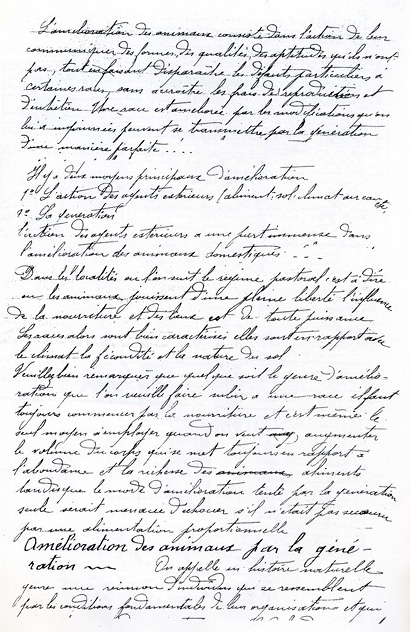 L'amélioration des animaux consiste dans l'action de leur
communiquer des formes, des qualités, des aptitudes qu'ils n'ont
pas, tout en faisant disparaître les défauts particuliers à
certaines races, sans accroître les frais de reproduction et
d'entretien. Une race est améliorée par les modifications qu'on
lui a imprimées peuvent se transmettre par la génération
d'une manière parfaite . . . .
Il y a deux moyens principaux d'amélioration
1o L'action Des agents extérieurs (aliment. sol. climat
2o La génération
L'action des agents exterieurs a une part immense dans
l'amélioration des animaux domestiques
Dans les localités ou l'on suit le régime pastoral c'est à dire
ou les animaux jouissent d'une pleine liberté l'influence
de la nourriture et des lieux est de toute puissance
Les races alors sont bien caracterisées elles sont en rapport avec
le climat la fécondité et la nature du sol
Veuillez bien remarquer que quel que soit le genre d'amélio-
ration que l'on veuille faire subir a une race il faut
toujours commencer par la nourriture et c'est même le
seul moyen a employer quand on veut augmenter
le volume du corps qui se met toujours en rapport à
l'abondance et la richesse des animaux aliments
tandis que le mode d'amélioration tenté par la génération
seule serait menacée d'échouer s'il n'était pas secouru
par une alimentation proportionnelle
Amélioration des animaux par la géné-
ration On appelle en histoire naturelle
genre une réunion d'individus qui se ressemblent
par les conditions fondamentales de leur organisation et qui